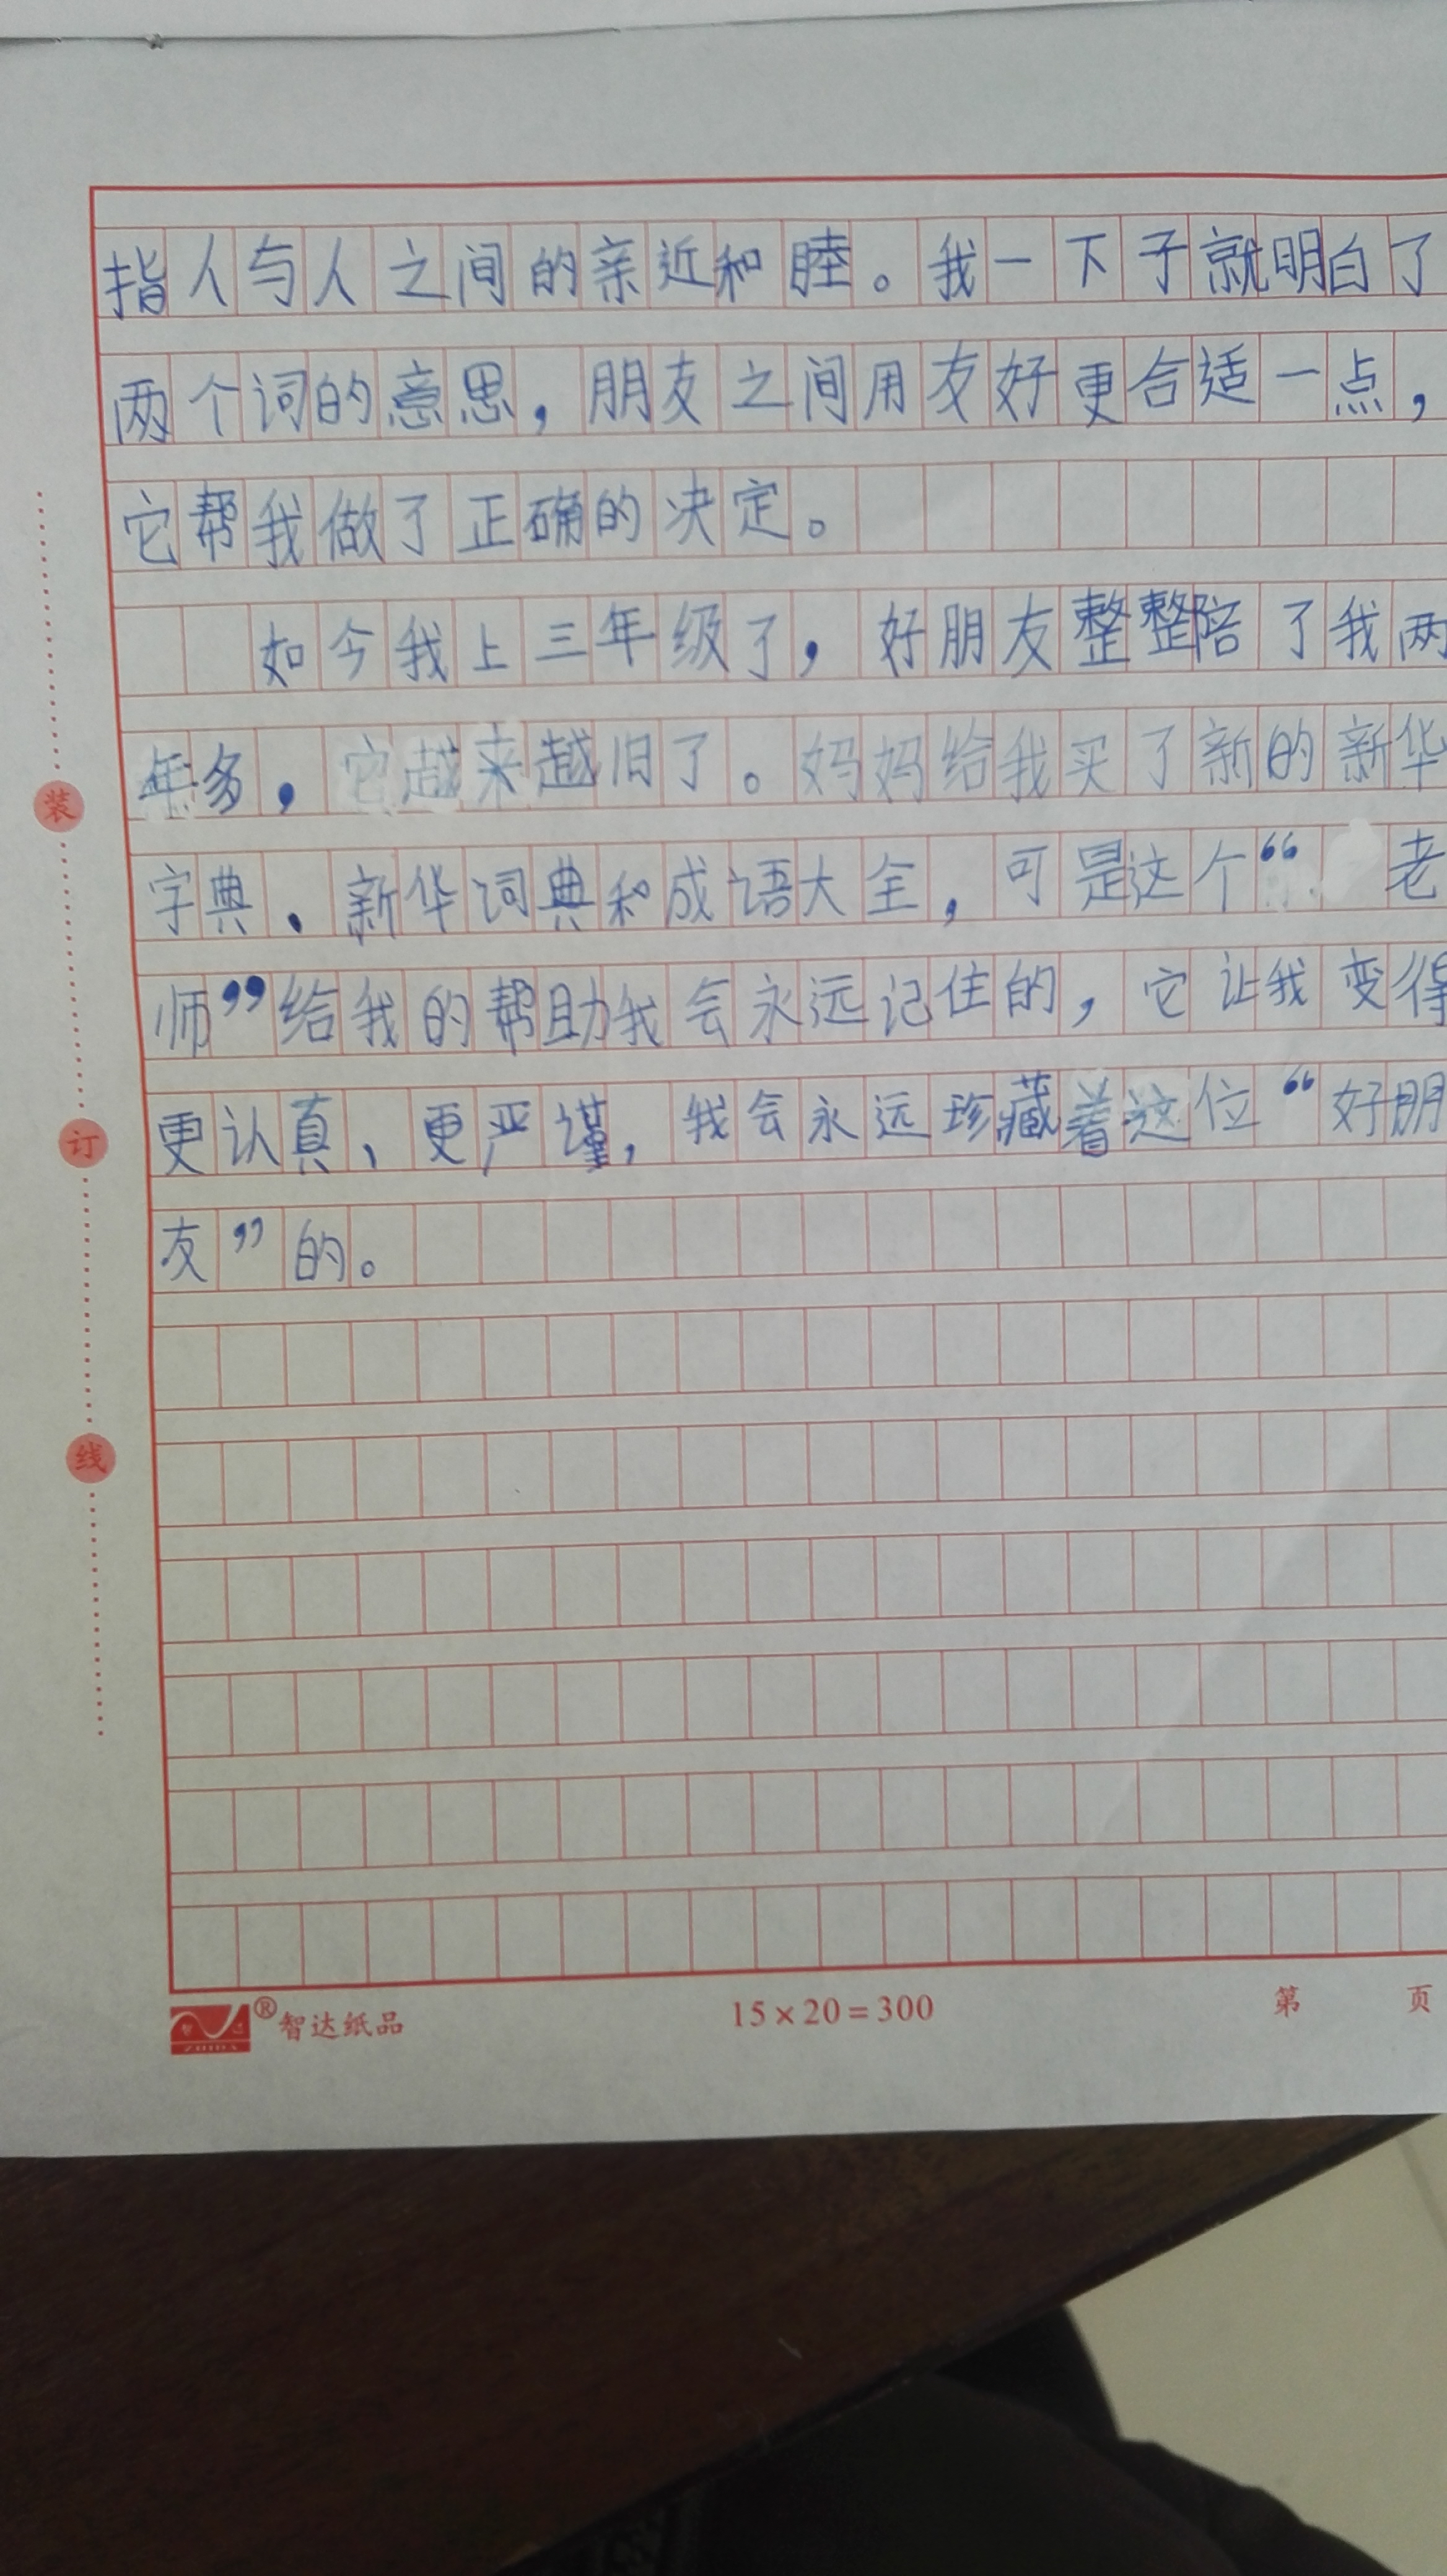 指人与人之间的亲近和睦。我一下子就明白了
两个词的意思，朋友之间用友好更合适一点，
它帮我做了正确的决定。
如今我上三年级了，好朋友整整陪了我两
年多，它越来越旧了。妈妈给我买了新的新华
字典、新华词典和成语大全，可是这个“老
师”给我的帮助我会永远记住的，它让我变得
更认真、更严谨，我会永远珍藏着这位“好朋
友”的。
装
订
线
®智达纸品 15×20=300 第 页